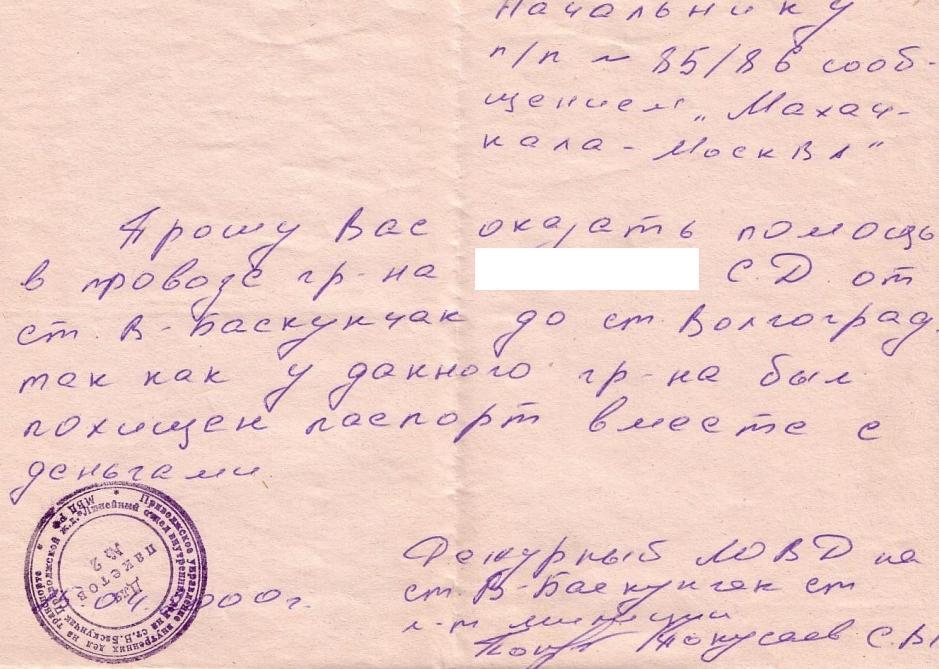 Начальнику
п/п № 85/86 сооб-
щением „Махач-
кала - Москва"
Прошу Вас оказать помощь
в провозе гр-на С.Д. от
ст. В-Баскунчак до ст. Волгоград,
так как у данного гр-на был
похищен паспорт вместе с
деньгами.
Дежурный ЛОВД на
ст. В-Баскунчак ст
л-т милиции
С.В.
Приволжское управление внутренних дел на транспорте
МВД РФ
Линейный отдел внутренних дел на ст. В.Баскунчак Приволжской ж.д.
Для
пакетов
№ 2
04 2000г.